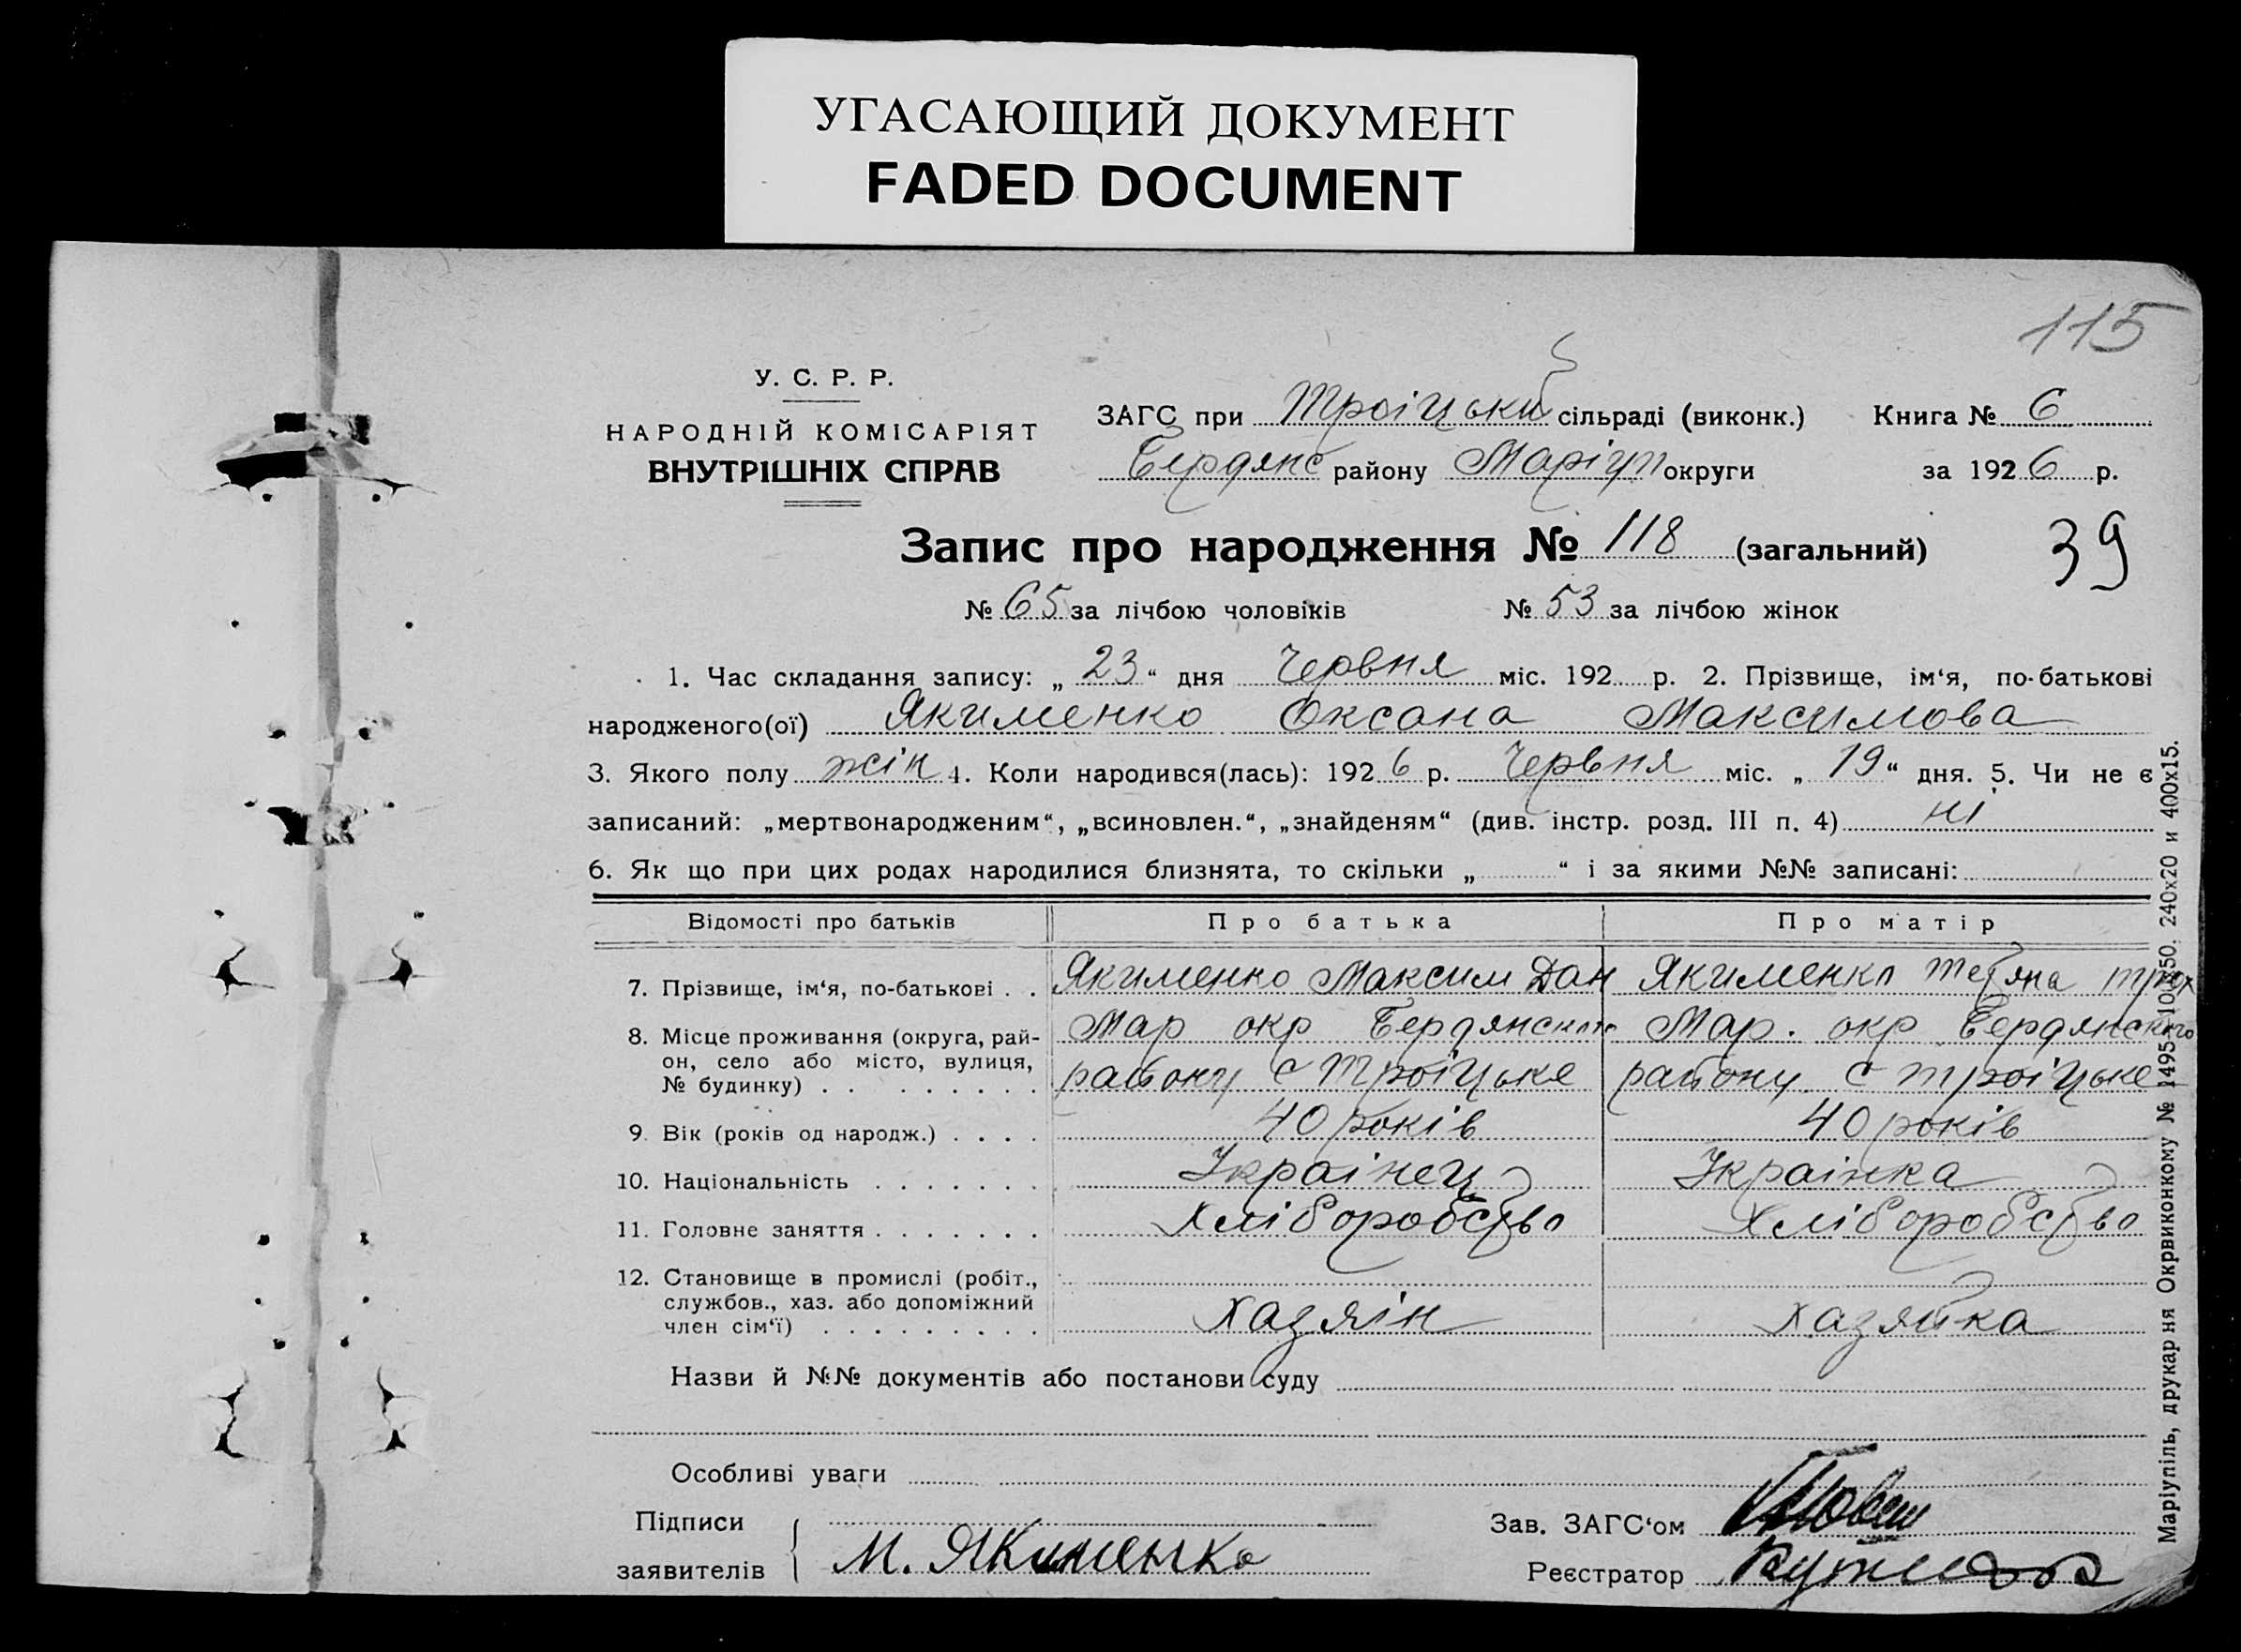 УГАСАЮЩИЙ ДОКУМЕНТ
FADED DOCUMENT
115
У. С. Р. Р.
НАРОДНІЙ КОМІСАРІЯТ
ВНУТРІШНІХ СПРАВ
ЗАГС при Троіцькій сільраді (виконк.) Книга № 6
Бердянс району Маріуп округи за 1926 р.
Запис про народження № 118 (загальний) 39
№ 65 за лічбою чоловіків № 53 за лічбою жінок
1. Час складання запису: „ 23 “ дня Червня міс. 192 р. 2. Прізвище, ім‘я, по-батькові
народженого(ої) Якименко Оксана Максимова
3. Якого полу жін 4. Коли народився(лась): 1926 р. Червня міс. „ 19 “ дня. 5. Чи не є
записаний: „мертвонародженим“, „всиновлен.“, „знайденям“ (див. інстр. розд. III п. 4) ні
6. Як що при цих родах народилися близнята, то скільки „ “ і за якими №№ записані:
Відомості про батьків Про батька Про матір
7. Прізвище, ім‘я, по-батькові . . Якименко Максим Дан Якименко Тетяна
8. Місце проживання (округа, рай- Мар окр Бердянского Мар. окр Бердянского
он, село або місто, вулиця,
№ будинку) району с Троіцьке району с Троіцьке
9. Вік (років од народж.) 40 років 40 років
10. Національність Украінец Украінка
11. Головне заняття Хліборобство Хліборобство
12. Становище в промислі (робіт.,
службов., хаз. або допоміжний
член сім‘ї) Хазяін Хазяйка
Назви й №№ документів або постанови суду
Особливі уваги
Підписи
заявителів М. Якименко
Зав. ЗАГС‘ом
Реєстратор
Маріупіль, друкарня Окрвиконкому № 1495-10350. 240x20 и 400x15.